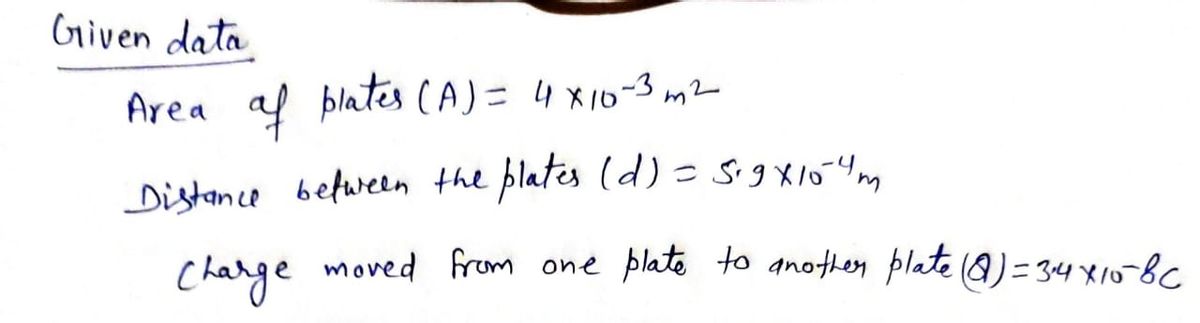 Given data
Area of plates (A) = 4 × 10⁻³ m²
Distance between the plates (d) = 5.9 × 10⁻⁴ m
Charge moved from one plate to another plate (Q) = 3.4 × 10⁻⁸ C